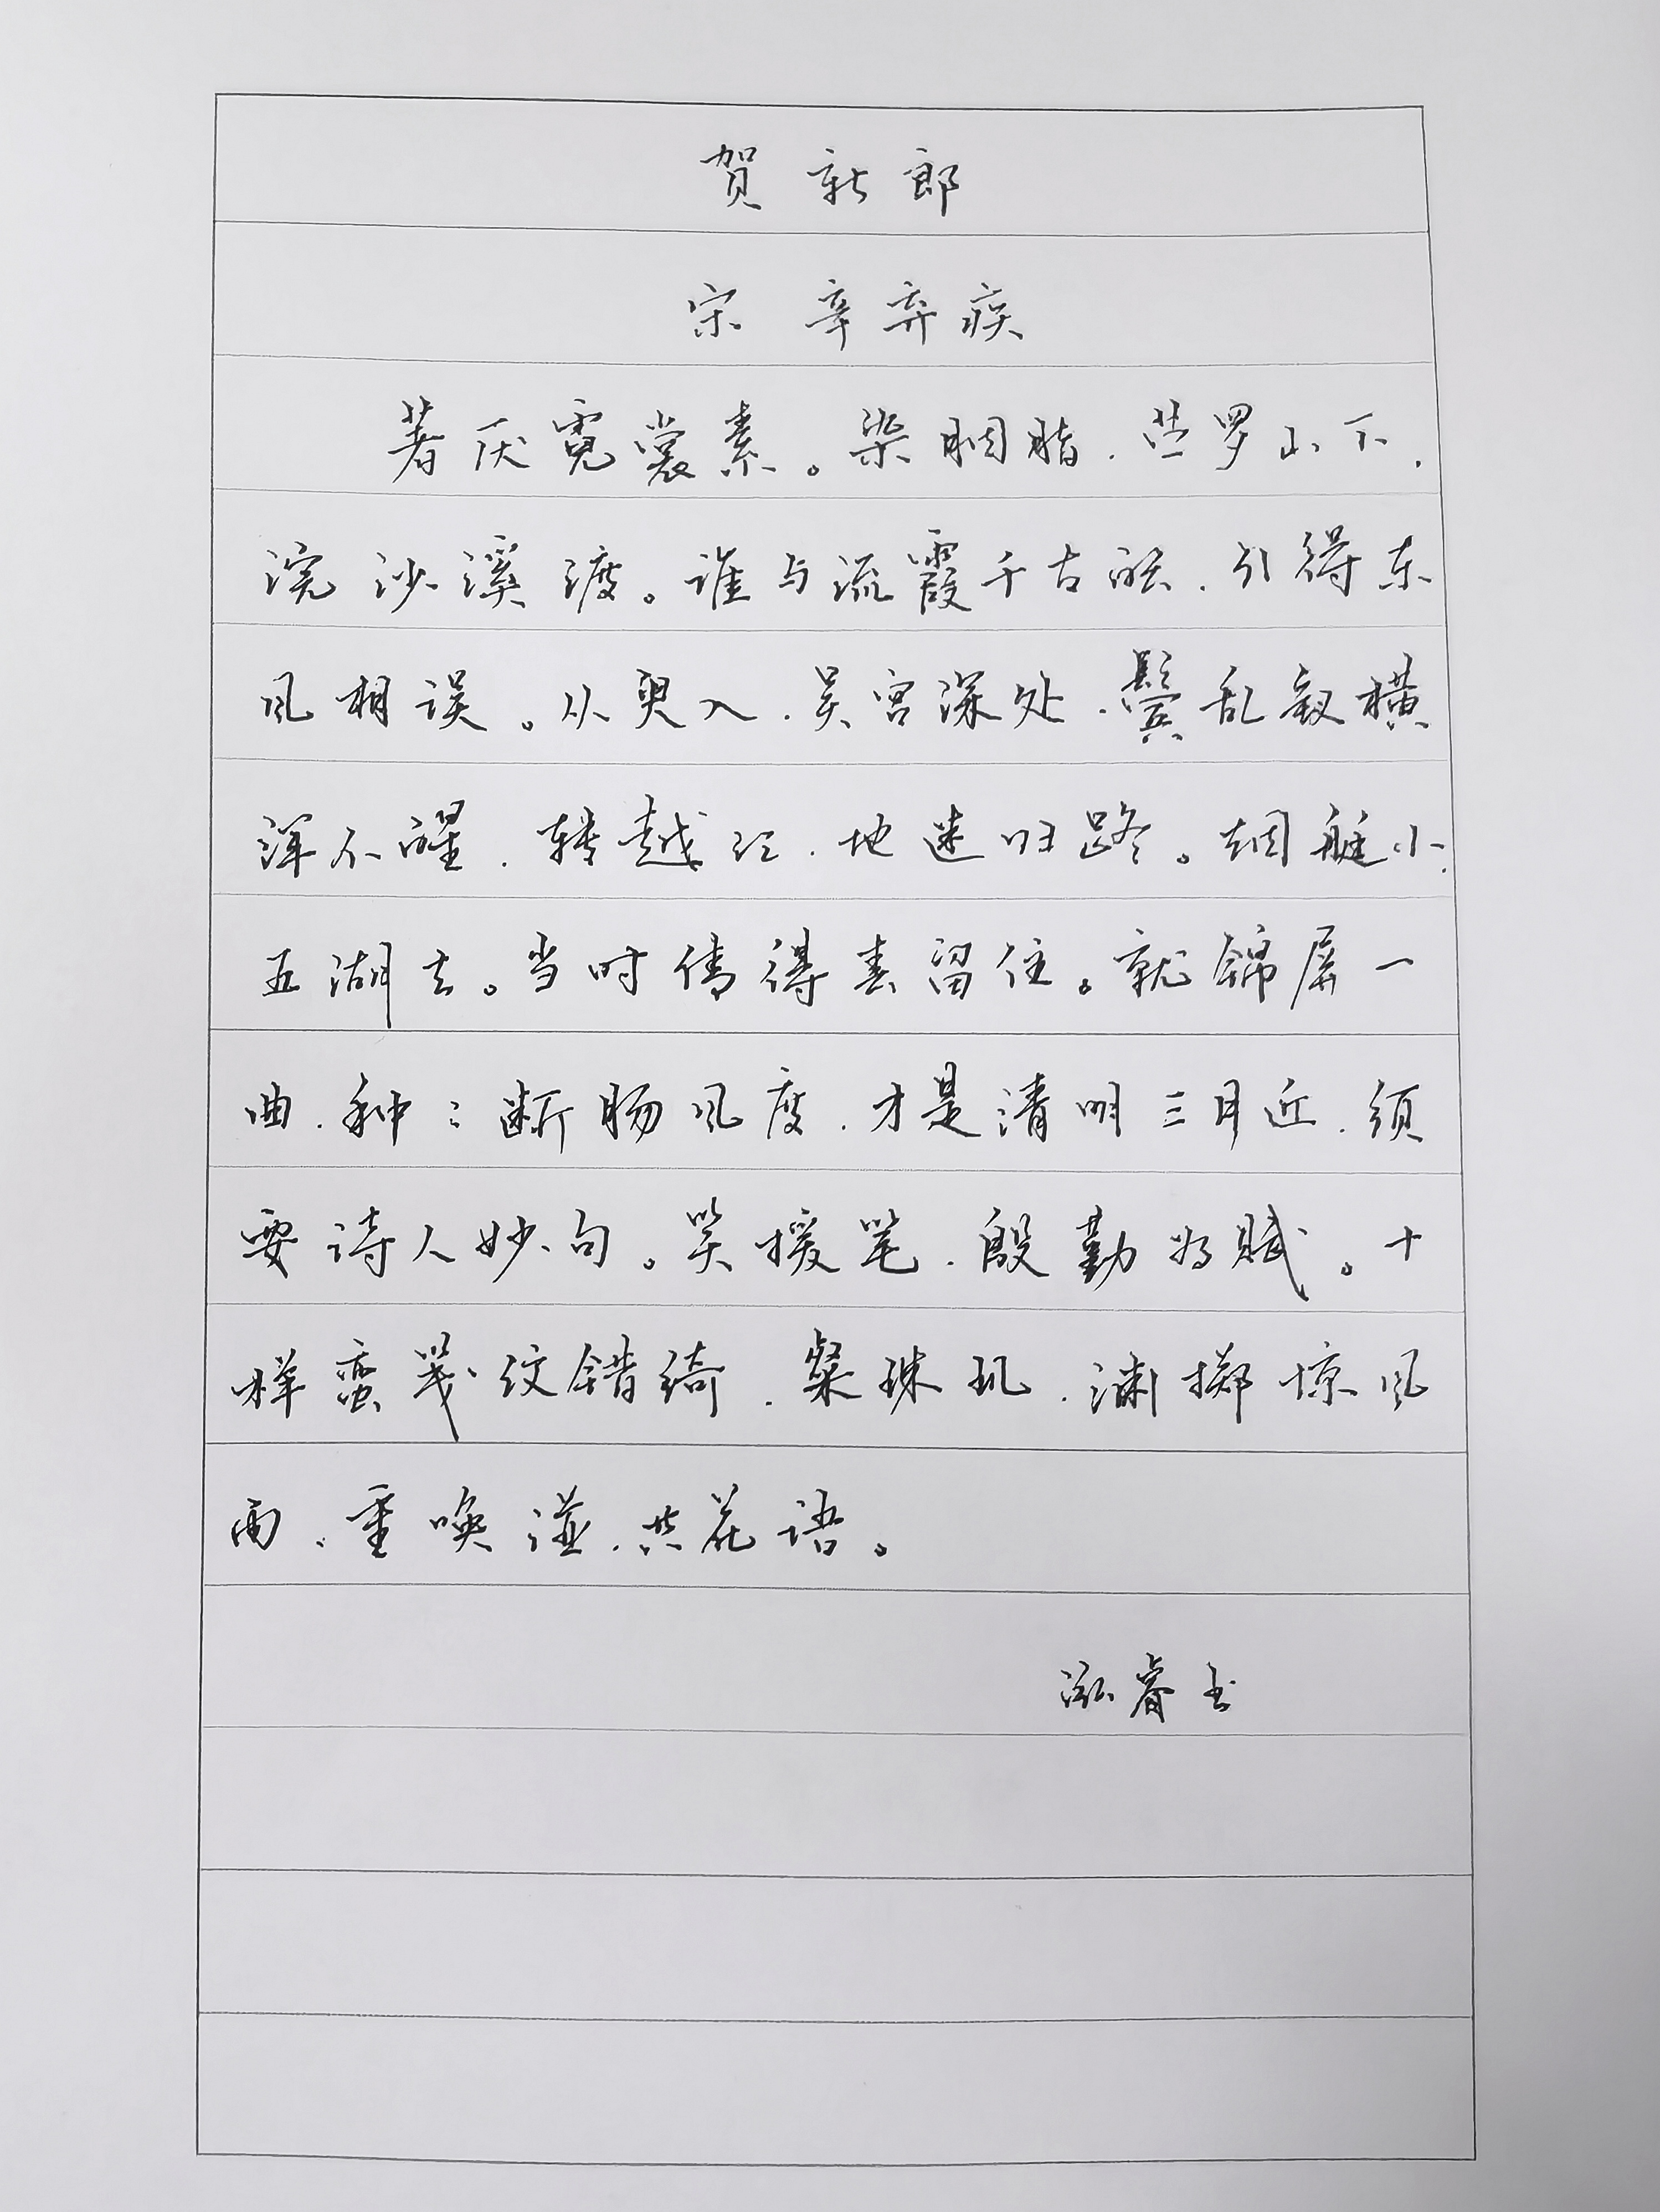 贺新郎
宋 辛弃疾
著厌霓裳素。染胭脂，苎罗山下，
浣沙溪渡。谁与流霞千古酝，引得东
风相误。从臾入，吴宫深处，鬓乱钗横
浑不醒，转越江，地迷归路。烟艇小，
五湖去。当时倩得春留住。就锦屏一
曲，种々断肠风度，才是清明三月近，须
要诗人妙句。笑援笔，殷勤为赋。十
样蛮笺纹错绮，粲珠玑，渊掷惊风
雨，重唤湓，共花语。
泓睿书